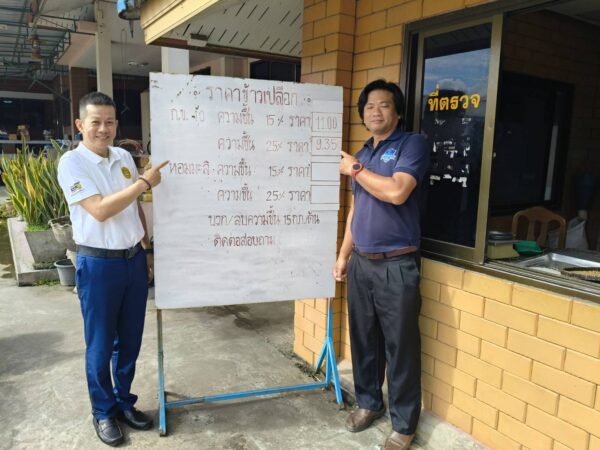 ราคาข้าวเปลือก
ก.ข. ความชื้น 15% ราคา 11.00
ความชื้น 25% ราคา 9.35
หอมมะลิ ความชื้น 15% ราคา
ความชื้น 25% ราคา
บวก/ลบความชื้น 15 กก./ตัน
ติดต่อสอบถาม
ที่ตรวจ